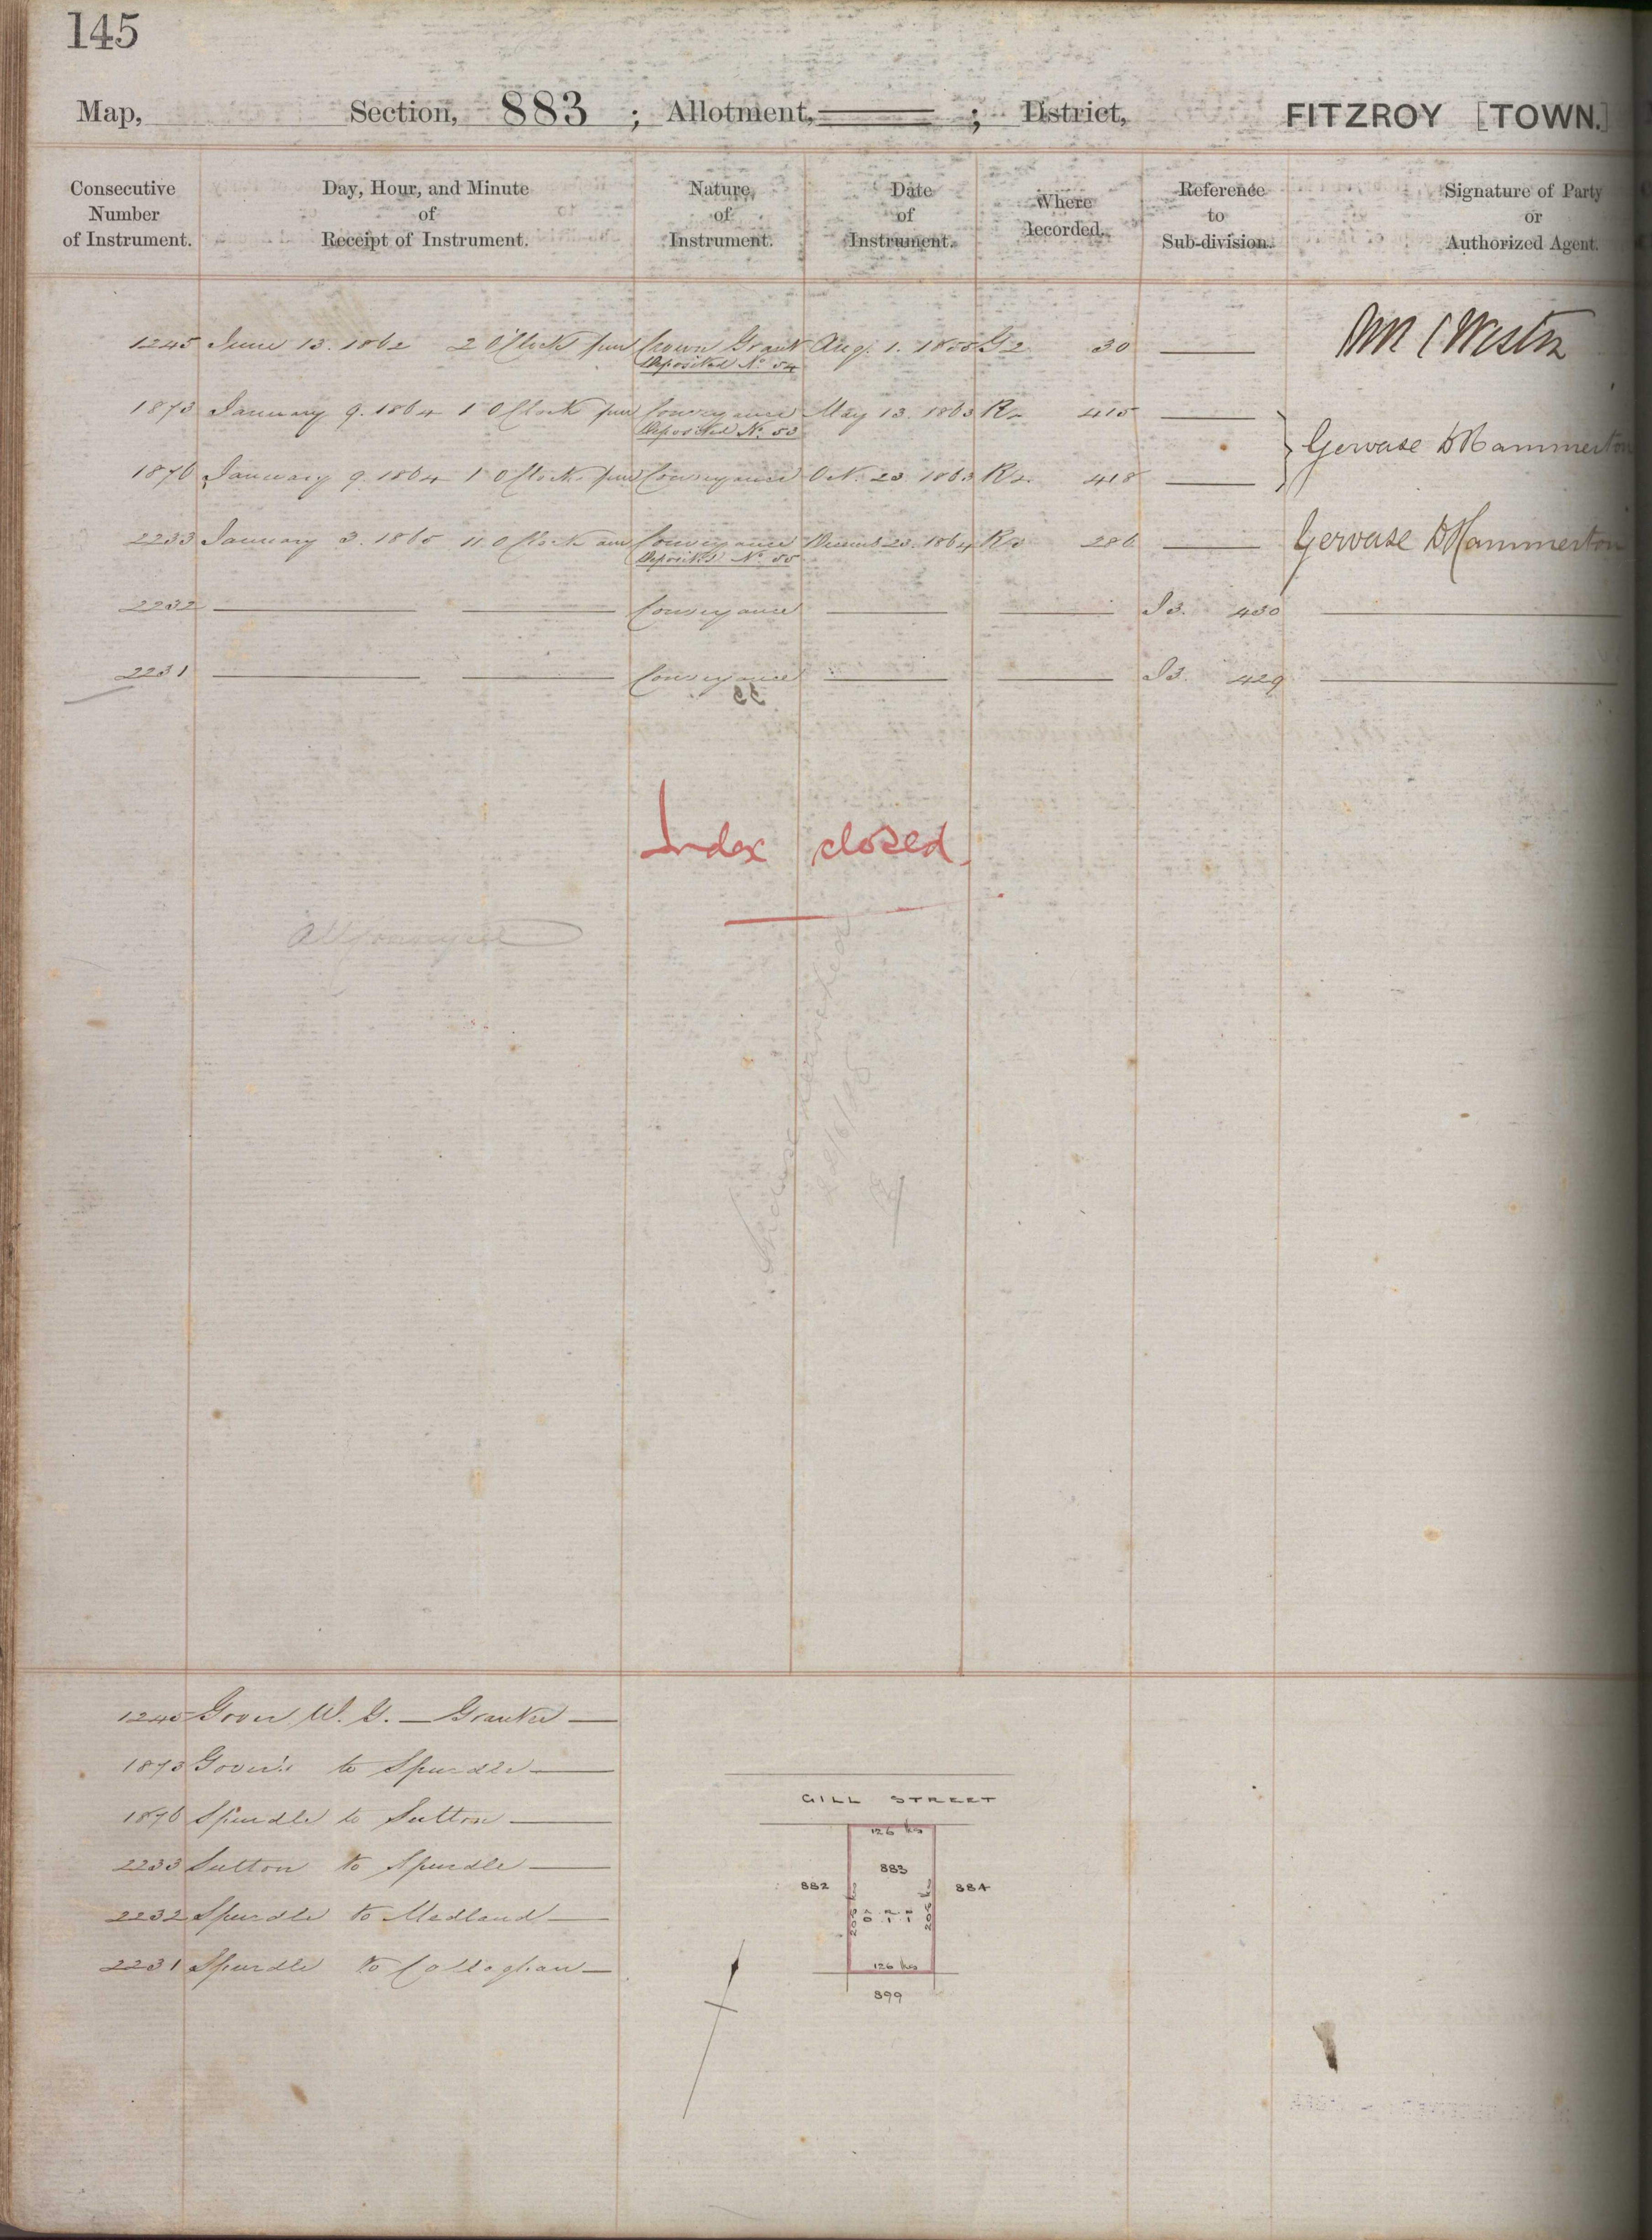 145
Map, Section, 883 ; Allotment, ; District, FITZROY [TOWN.]
Consecutive Number of Instrument.
Day, Hour, and Minute of Receipt of Instrument.
Nature of Instrument.
Date of Instrument.
Where Recorded.
Reference to Sub-division.
Signature of Party or Authorized Agent.
1245 June 13. 1862 2 O'Clock pm Crown Grant Aug. 1. 1855 G2 30
Deposited No. 54
1873 January 9. 1864 1 O'Clock pm Conveyance May 13. 1863 R2 415
Deposited No. 53
Gervase D Hammerton
1876 January 9. 1864 1 O'Clock pm Conveyance Oct. 23. 1863 R2. 418
2233 January 3. 1865 11 O'Clock am Conveyance Decemb 23. 1864 R3 286 Gervase D Hammerton
Deposited No. 55
2232 Conveyance I3. 430
2231 Conveyance I3. 429
Index closed.
All conveyed
1245 Gover W. G. — Grantee
1873 Gover to Spurdle
1876 Spurdle to Sutton
2233 Sutton to Spurdle
2232 Spurdle to Medland
2231 Spurdle to Callaghan
GILL STREET
126 lks
883
882
884
126 lks
899